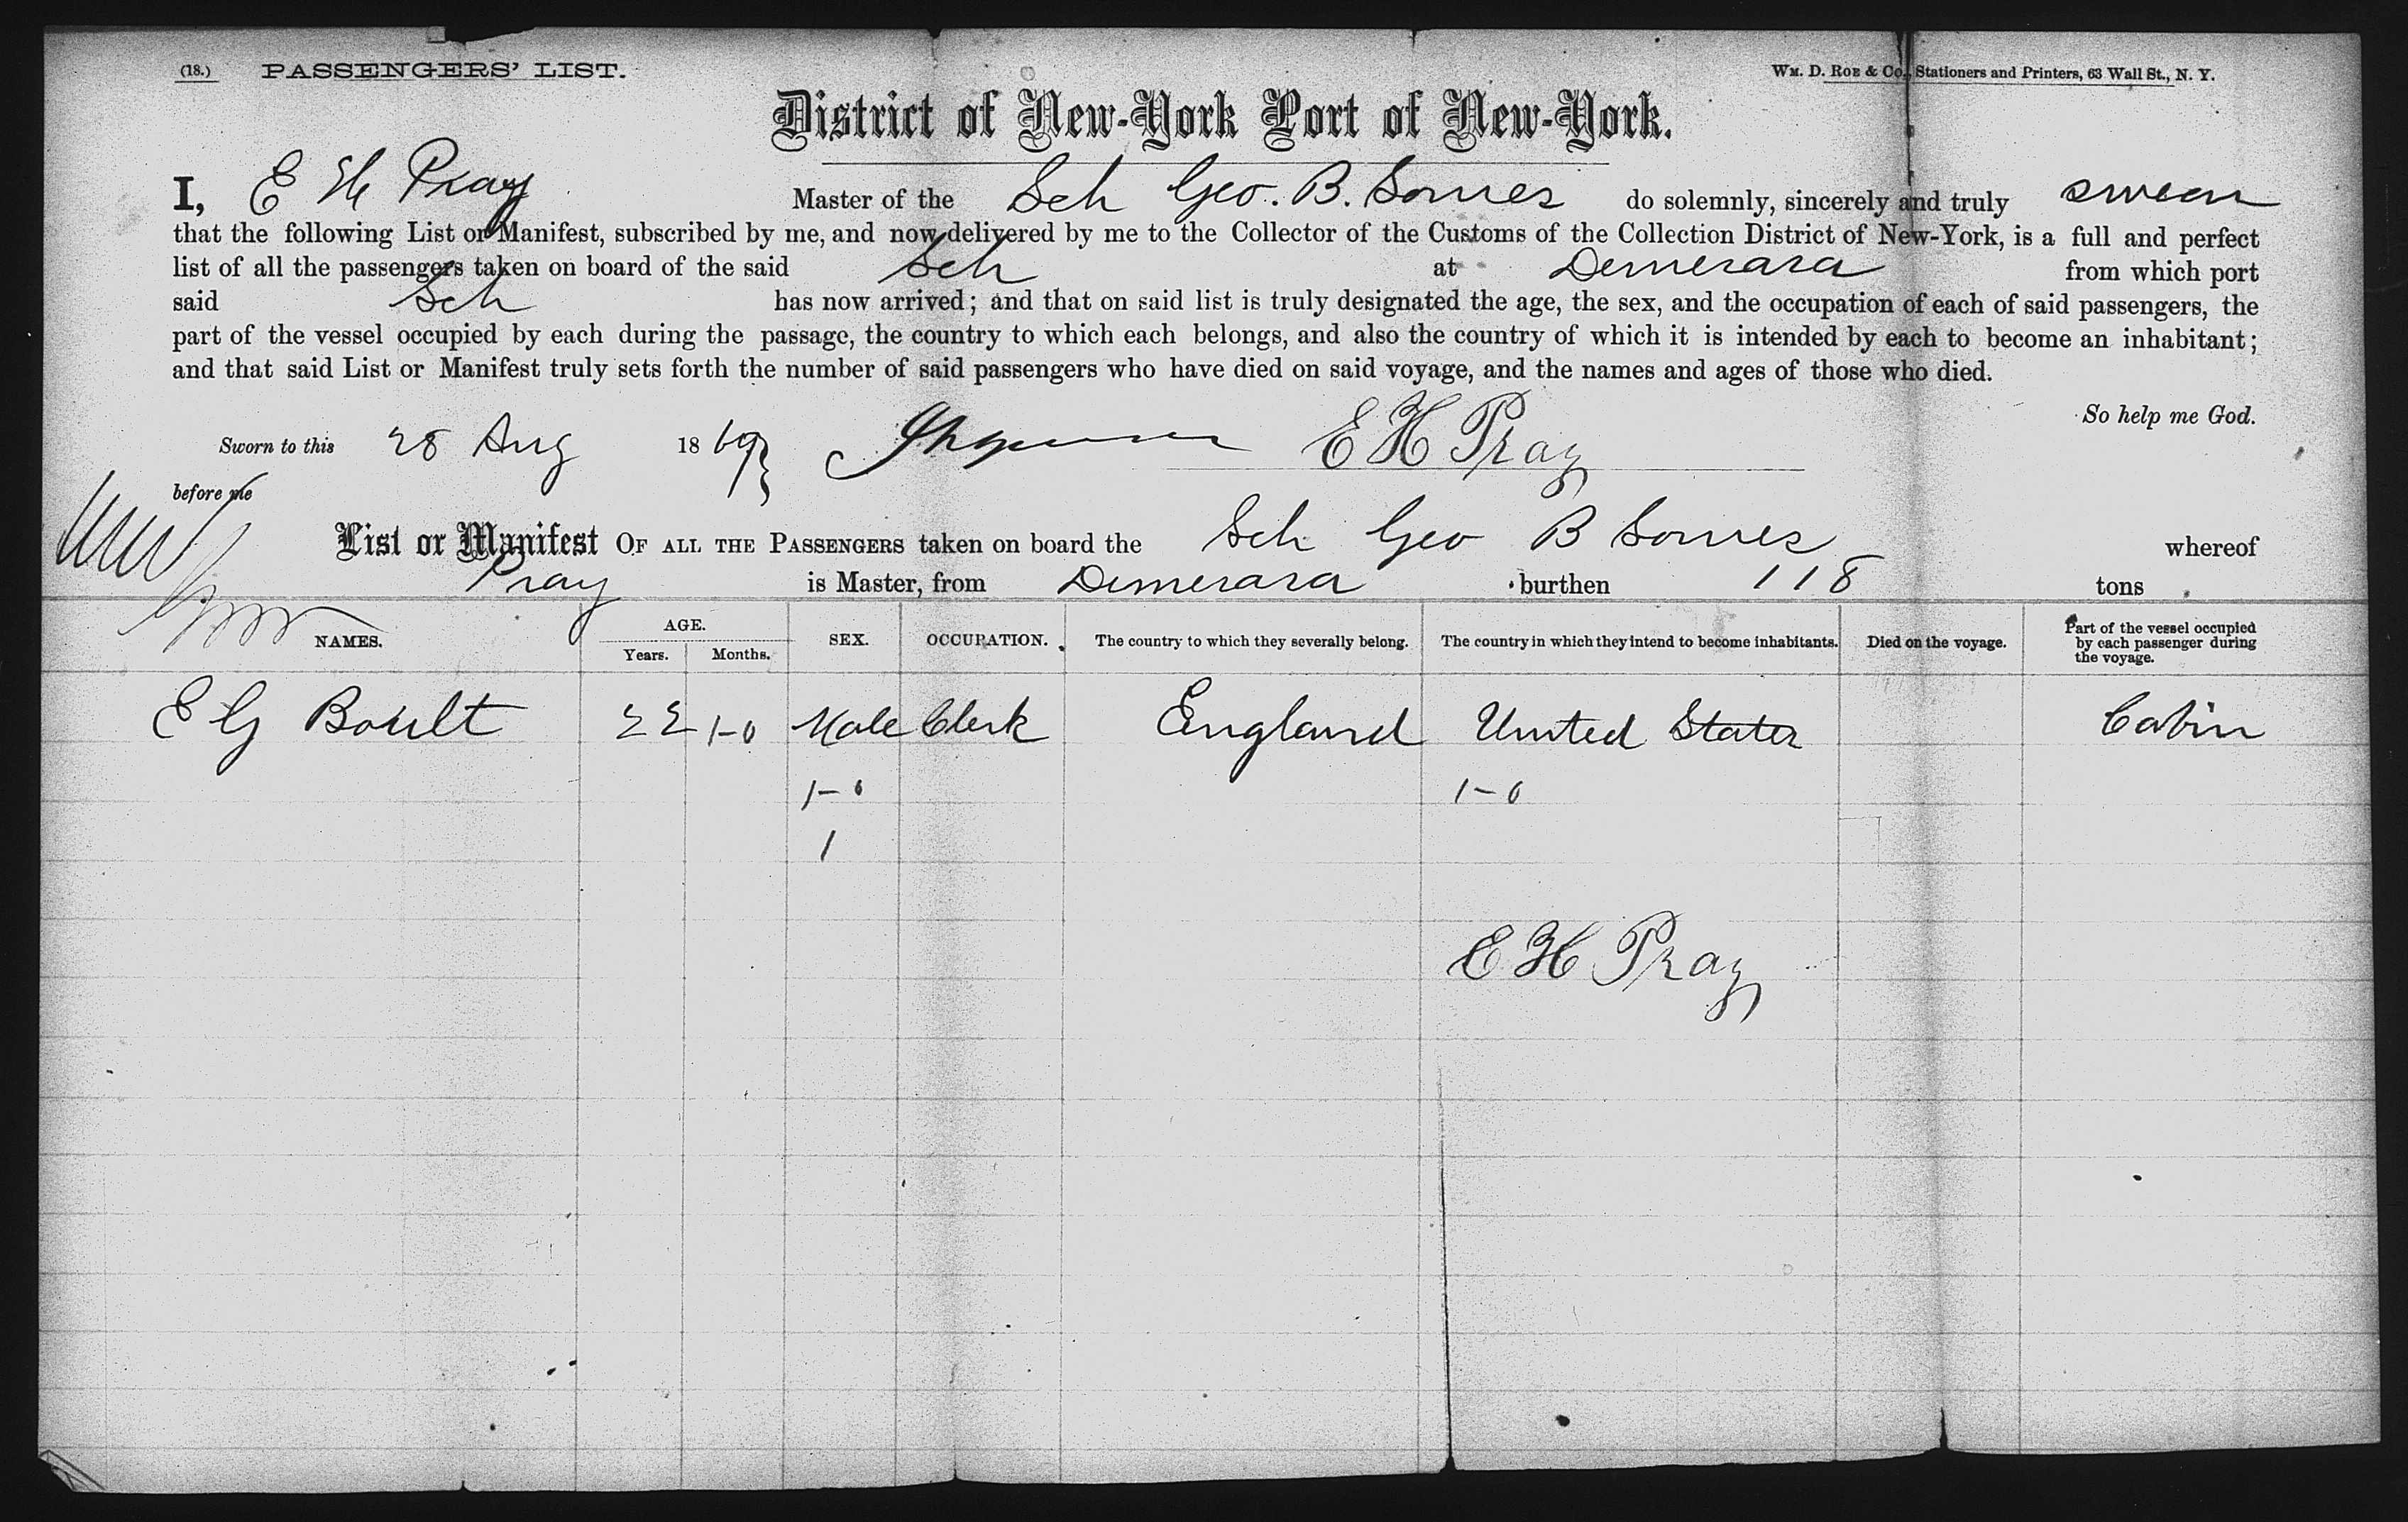 (18.) PASSENGERS' LIST. WM. D. ROE & Co., Stationers and Printers, 63 Wall St., N. Y.
District of New-York Port of New-York.
I, E H Pray Master of the Sch Geo. B. Somes do solemnly, sincerely and truly swear
that the following List or Manifest, subscribed by me, and now delivered by me to the Collector of the Customs of the Collection District of New-York, is a full and perfect
list of all the passengers taken on board of the said Sch at Demerara from which port
said Sch has now arrived; and that on said list is truly designated the age, the sex, and the occupation of each of said passengers, the
part of the vessel occupied by each during the passage, the country to which each belongs, and also the country of which it is intended by each to become an inhabitant;
and that said List or Manifest truly sets forth the number of said passengers who have died on said voyage, and the names and ages of those who died.
So help me God.
Sworn to this 28 Aug 1869 E H Pray
before me
List or Manifest OF ALL THE PASSENGERS taken on board the Sch Geo B Somes whereof
Pray is Master, from Demerara burthen 118 tons
NAMES. AGE. Years. Months. SEX. OCCUPATION. The country to which they severally belong. The country in which they intend to become inhabitants. Died on the voyage. Part of the vessel occupied by each passenger during the voyage.
E G Boult 22 1-0 Male Clerk England United States Cabin
1-0 1-0
1
E H Pray